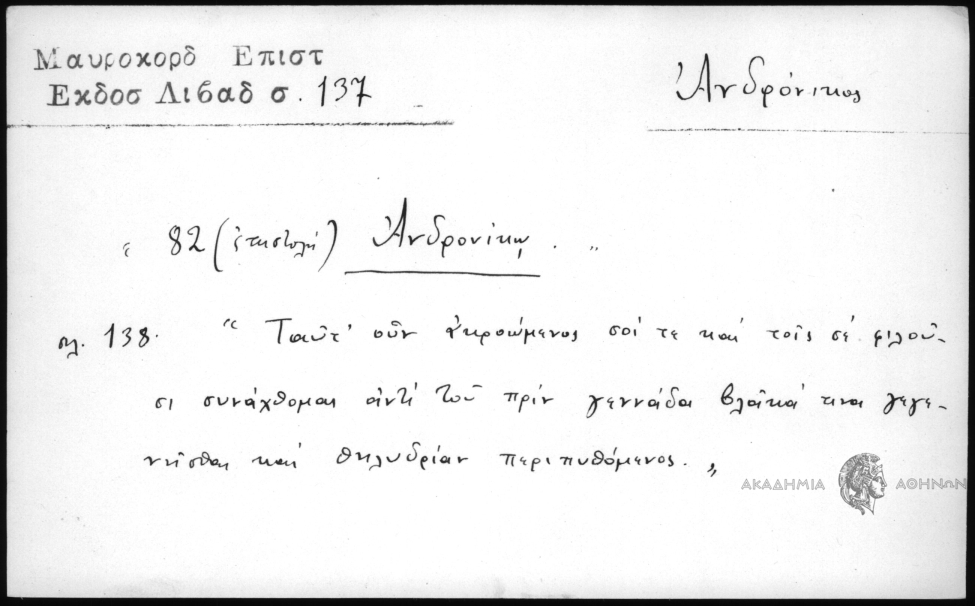 Μαυροκορδ Επιστ
Εκδοσ Λιβαδ σ. 137
Ἀνδρόνικος
" 82 (ἐπιστολή) Ἀνδρονίκῳ. "
σλ. 138. " Ταῦτ' οὖν ἀκροώμενος σοί τε καί τοῖς σέ φιλοῦ-
σι συνάχθομαι ἀντί τοῦ πρίν γεννάδα βλᾶκά τινα γεγε-
νῆσθαι καί θηλυδρίαν περιπυθόμενος. "
ΑΚΑΔΗΜΙΑ ΑΘΗΝΩΝ